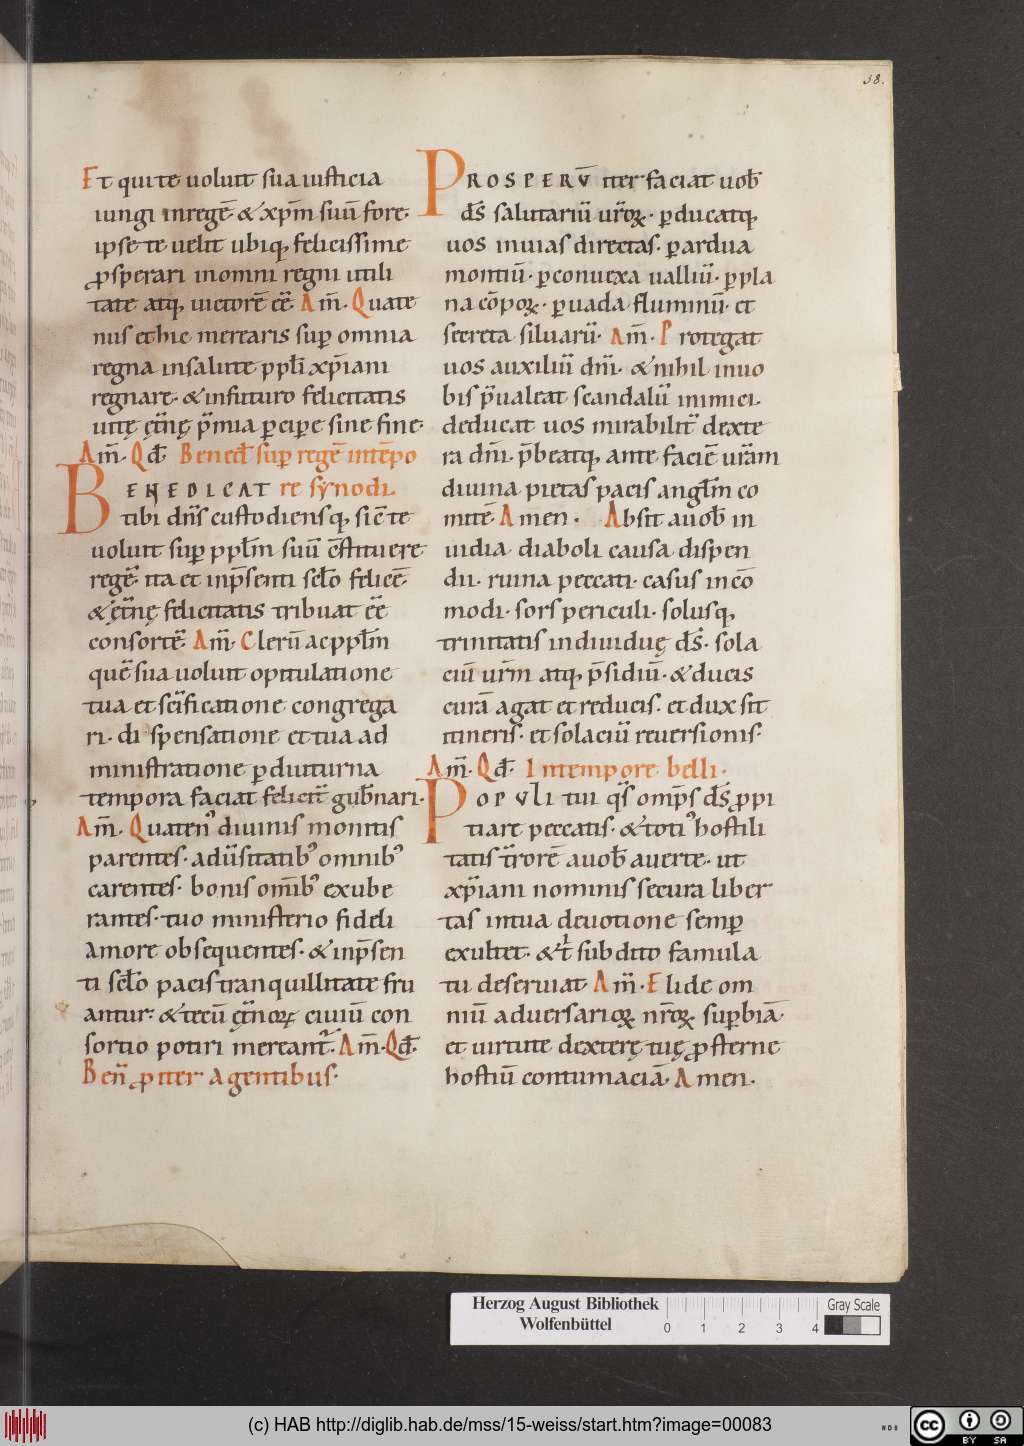 38.
Et qui te uoluit sua iusticia
iungi in regē & xp̄m suū fore·
ipse te uelit ubiq; felicissime
ꝓsperari in omni regni utili
tate atq; uictorē eē Am̄· Quate
nus et hic mercaris suꝑ omnia
regna in salute ppl̄i xp̄iani
regnare· & in futuro felicitatis
uitę ęt̄nę p̄mia ꝑcipe sine fine·
Am̄· Qđ Bened̄ suꝑ regē in tēpo
BENEDICAT re synodi
tibi dn̄s custodiensq; sic̄ te
uoluit suꝑ ppl̄m suū c̄stituere
regē· ita et in p̄senti sc̄lo felicē
& ęt̄nę felicitatis tribuat eē
consortē· Am̄· Clerū ac ppl̄m
quē sua uoluit opitulatione
tua et sc̄ificatione congrega
ri· dispensatione et tua ad
ministratione ꝑ diuturna
tempora faciat felicit̄ gub̄nari·
Am̄· Quaten᾽ diuinis monitis
parentes· adūsitatib᾽ omnib᾽
carentes· bonis om̄ib᾽ exube
rantes· tuo ministerio fideli
amore obsequentes· & in p̄sen
ti sc̄lo pacis tranquillitate fru
antur· & tecū ęt̄noꝝ ciuiū con
sortio potiri mereant᾽· Am̄· Qđ·
Ben̄ ꝓ iter agentibus·
PROSPERŪ iter faciat uob̄
ds̄ salutariū ur̄oꝝ· ꝑducatq;
uos in uias directas· ꝑ ardua
montiū· ꝑ conuexa ualliū· ꝑ pla
na cāpoꝝ· ꝑ uada fluminū· et
secreta siluarū· Am̄· Protegat
uos auxiliū dn̄i· & nihil in uo
bis p̄ualeat scandalū inimici·
deducat uos mirabilit̄ dexte
ra dn̄i· p̄beatq; ante faciē ur̄am
diuina pietas pacis angl̄m co
mitē· Amen· Absit a uob̄ in
uidia diaboli causa dispen
dii· ruina peccati· casus incō
modi· sors periculi· solusq;
trinitatis indiuiduę ds̄· sola
ciū ur̄m atq; p̄sidiū· & ducis
curā agat et reducis· et dux sit
itineris· et solaciū reuersionis·
Am̄· Qđ· In tempore belli·
POPULI tui qs̄ omp̄s ds̄ ꝓpi
tiare peccatis· & toti᾽ hostili
tatis t̄rorē a uob̄ auerte· ut
xp̄iani nominis secura liber
tas in tua deuotione semꝑ
exultet· & t̄ subdito famula
tu deseruiat Am̄· Elide om
niū aduersarioꝝ nr̄oꝝ suꝑbiā·
et uirtute dexterę tuę ꝓsterne
hostiū contumaciā· Amen·
Herzog August Bibliothek
Wolfenbüttel
0 1 2 3 4
Gray Scale
(c) HAB http://diglib.hab.de/mss/15-weiss/start.htm?image=00083
WDB
cc BY SA